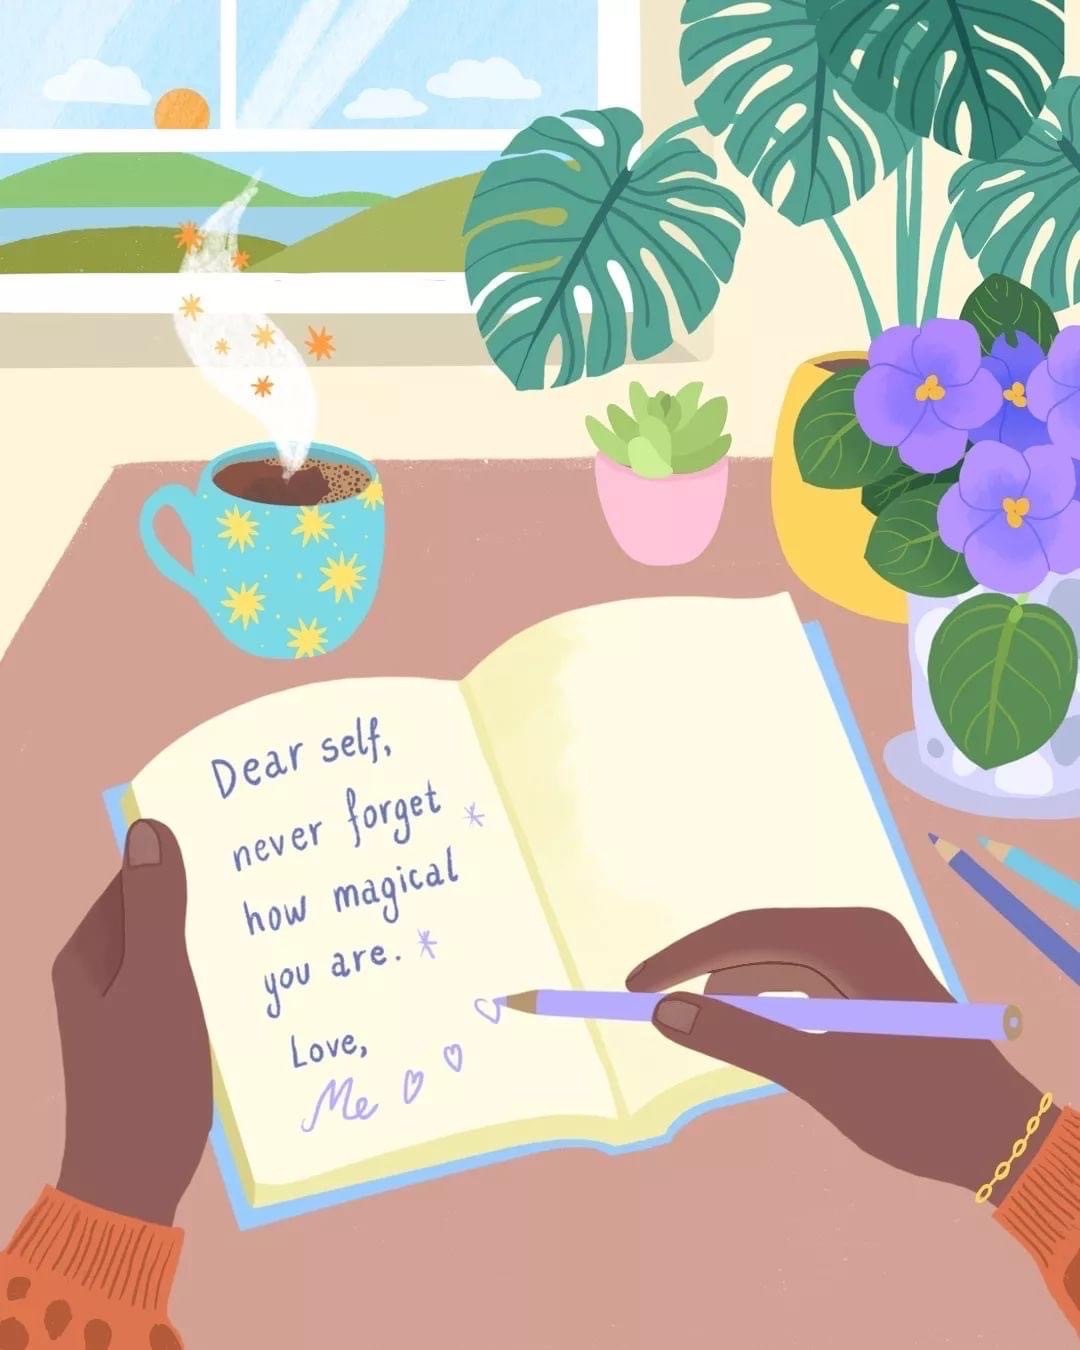 Dear self,
never forget
how magical
you are.
Love,
Me